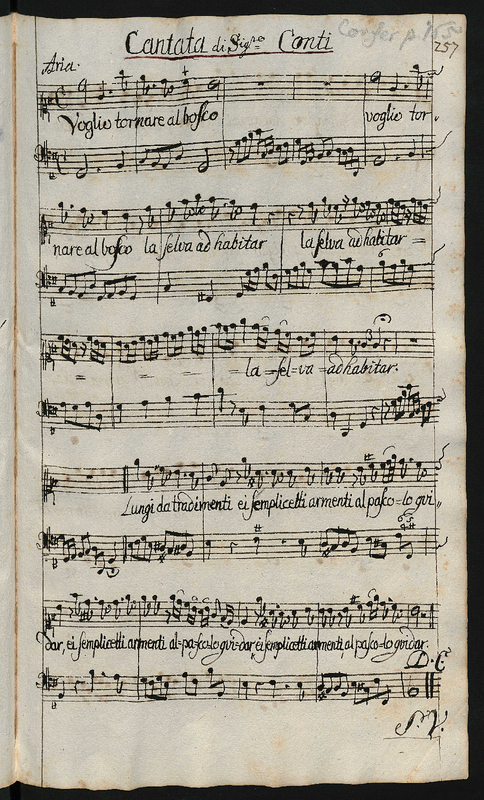 Cantata di Sig.ro Conti
257
Aria.
Voglio tornare al bosco voglio tor-
nare al bosco la selva ad habitar la selva ad habitar =
la = sel = va = ad habitar.
Lungi da tradimenti ei semplicetti armenti al pasco-lo gui=
dar, ei semplicetti armenti al-pa-sco-lo gui-dar, ei semplicetti armenti, al pasco-lo guidar.
D. C.